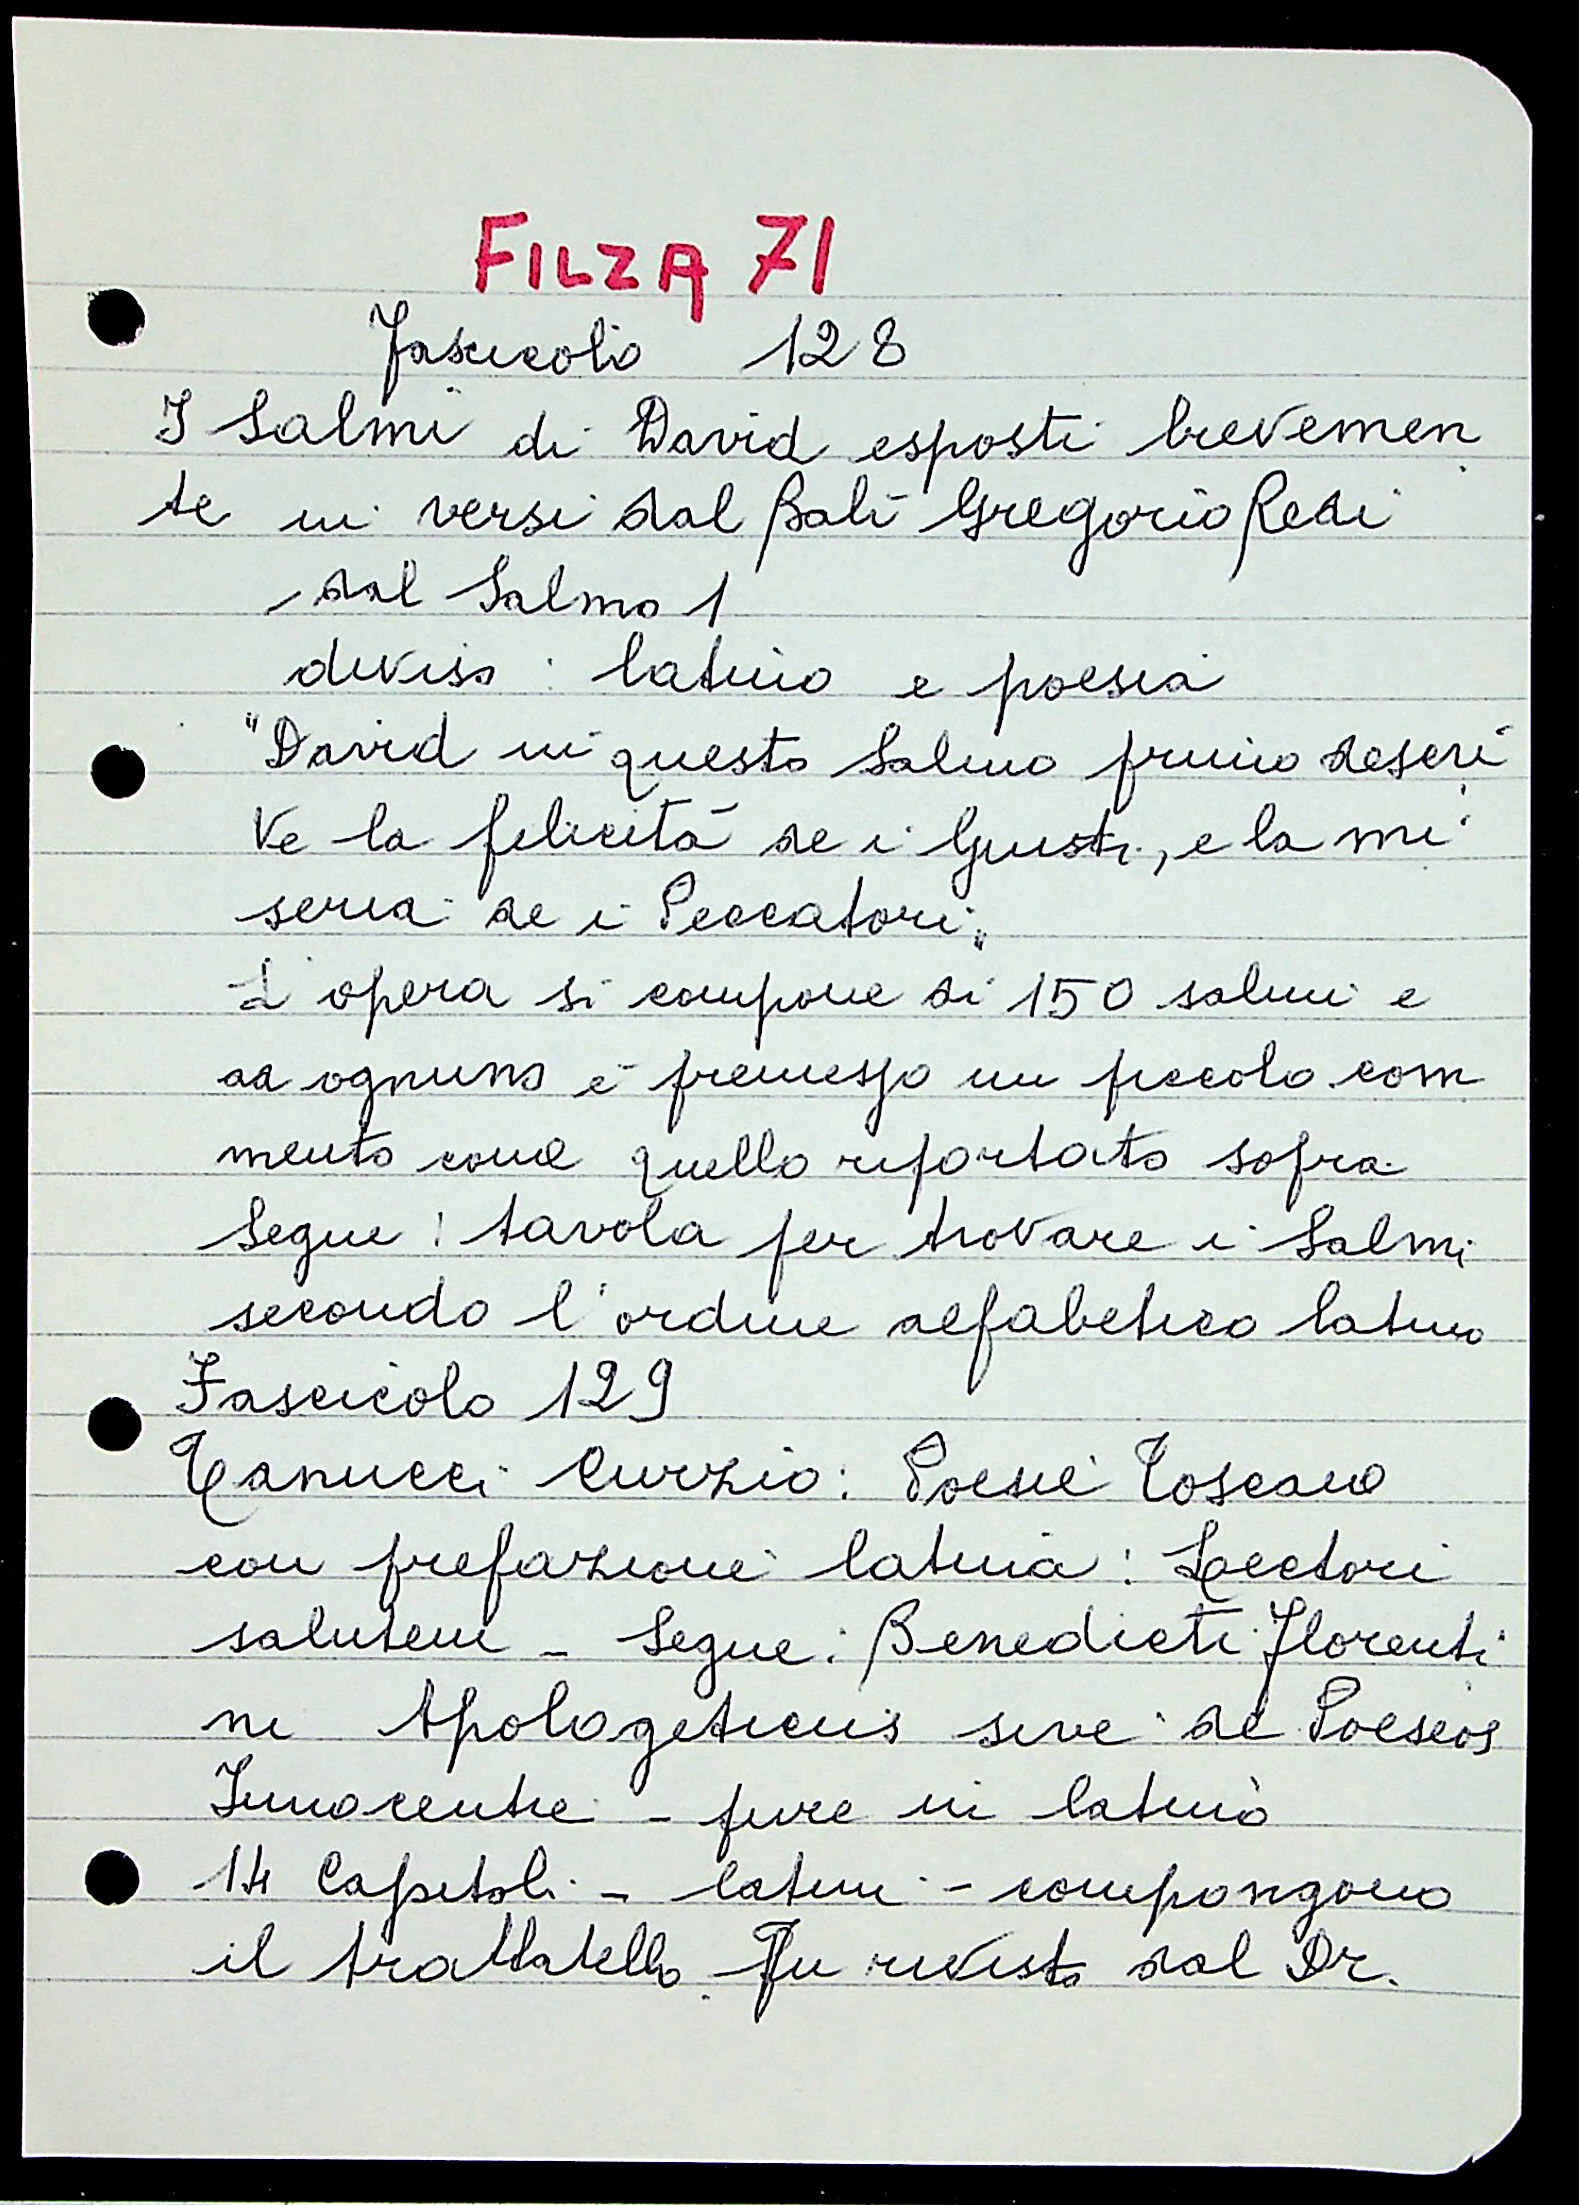 FILZA 71
Fascicolo 128
I Salmi di David esposti brevemen
te in versi dal Balì Gregorio Redi
dal Salmo 1
diviso : latino e poesia
"David in questo Salmo primo descri
ve la felicità de i Giusti, e la mi
seria de i Peccatori"
L'opera si compone di 150 salmi e
ad ognuno è premesso un piccolo com
mento come quello riportato sopra
Segue : tavola per trovare i Salmi
secondo l'ordine alfabetico latino
Fascicolo 129
Tanucci Curzio : Poesie Toscane
con prefazione latina : Lectori
salutem - Segue : Benedicti Florenti
ni Apologeticus sive de Poeseos
Innocentie - pure in latino
14 Capitoli - latini - compongono
il trattatello. Fu rivisto dal Dr.